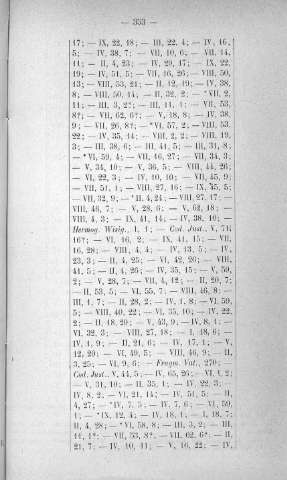 — 353 —
17; — IX, 22, 18; — III, 22, 4; — IV, 16,
5; — IV, 38, 7; — VII, 10, 6; — VII, 14,
11; — II, 4, 23; — IV, 29, 17; — IX, 22,
19; — IV, 51, 5; — VII, 16, 26; — VIII, 50,
13; — VIII, 53, 21; — II, 12, 19; — IV, 38,
8; — VIII, 50, 14; — II, 32, 2; — *VII, 2,
11; — III, 3, 2*; — III, 44, 4; — VII, 53,
8*; — VII, 62, 6*; — V, 18, 8; — IV, 38,
9; — VII, 26, 8*; — *VI, 57, 2; — VIII, 53,
22; — IV, 35, 14; — VIII, 2, 2; — VIII, 19,
3; — III, 38, 6; — III, 41, 5; — III, 31, 8;
— *VI, 59, 4; — VII, 16, 27; — VII, 34, 3;
— V, 34, 10; — V, 36, 5; — VIII, 44, 26;
— VI, 22, 3; — IV, 10, 10; — VII, 45, 9;
— VII, 51, 1; — VIII, 27, 16; — IX, 35, 5;
— VII, 32, 9; — *II, 4, 24; — VIII, 27, 17;
VIII, 46, 7; — V, 28, 6; — V, 62, 18; —
VIII, 4, 3; — IX, 41, 14; — IV, 38, 10; —
Hermog. Wisig., 1, 1; — Cod. Just., V, 71,
16?; — VI, 16, 2; — IX, 41, 15; — VII,
16, 28; — VIII, 4, 4; — IV, 13, 5; — IV,
23, 3; — II, 4, 25; — VI, 42, 26; — VIII,
41, 5; — II, 4, 26; — IV, 35, 15; — V, 59,
2; — V, 28, 7; — VII, 4, 12; — II, 20, 7;
— II, 53, 5; — VI, 55, 7; — VIII, 46, 8; —
III, 1, 7; — II, 28, 2; — IV, 1, 8; — VI, 59,
5; — VIII, 40, 22; — VI, 35, 10; — IV, 22,
2; — II, 18, 20; — V, 43, 9; — IV, 8, 1; —
VI, 32, 3; — VIII, 27, 18; — I, 18, 6; —
IV, 1, 9; — II, 21, 6; — IV, 17, 1; — V,
12, 20; — VI, 49, 5; — VIII, 46, 9; — II,
3, 25; — VI, 9, 6; — Fragm. Vat., 270;
Cod. Just., V, 44, 5; — IV, 65, 26; — VI, 1, 2;
— V, 31, 10; — II, 35, 1; — IV, 22, 3; —
IV, 8, 2; — VI, 21, 14; — IV, 51, 5; — II,
4, 27; — *IV, 7, 5; — IV, 7, 6; — VI, 59,
4; — *IX, 12, 4; — IV, 18, 1; — I, 18, 7;
II, 4, 28; — *VI, 58, 8; — III, 3, 2; — III,
11, 1*; — VII, 53, 8*; — VII, 62, 6*; — II,
21, 7; — IV, 10, 11; — V, 16, 22; — IV,